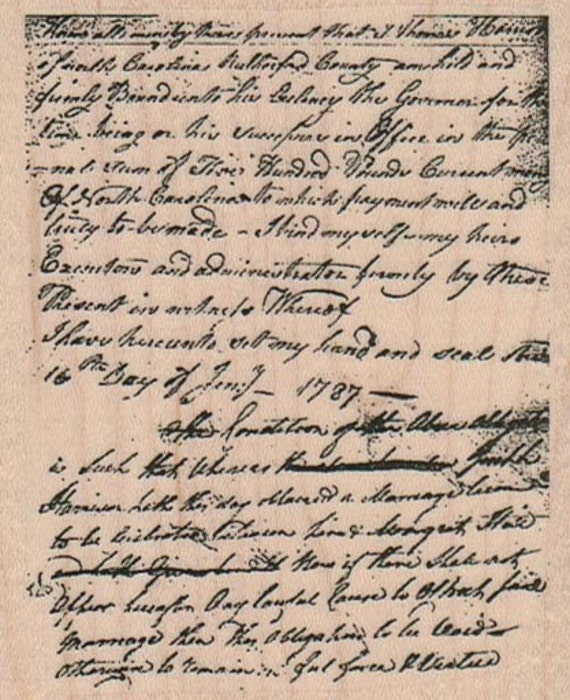 Know all men by these present that I Thomas
of north Carolina Rutherford County am held and
firmly Bound unto his Exelency the Governor for the
time being or his successor in Office in the
nal sum of Five Hundred Pounds Current mony
Of North Carolina to which payment well and
truly to be made - I bind my self my heirs
Executors and administrators firmly by these
Present in witness Whereof
I have hereunto set my hand and seal this
16th Day of 1787
The Condition of the Above
is Such that Whereas
Harrison hath this day obtained a Marriage
to be Celebrated between him & Margrit
Now if there shall not
appear hereafter Any lawful Cause to
Marriage then this Obligation to be void
Otherwise to remain in full force & Vertue